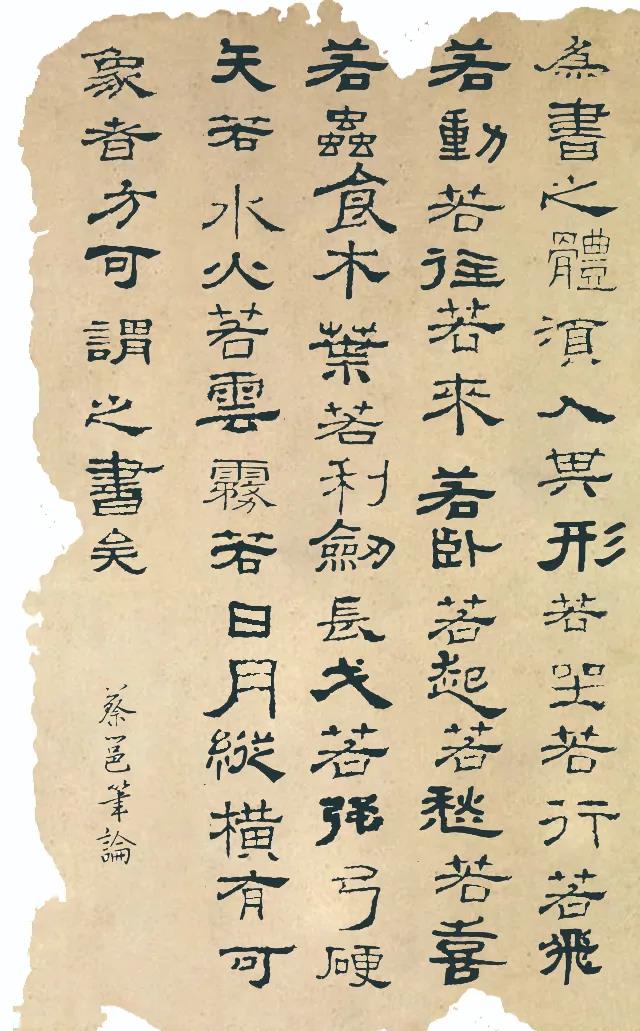 為書之體須入其形若坐若行若飛
若動若往若來若臥若起若愁若喜
若蟲食木葉若利劒長戈若强弓硬
矢若水火若雲霧若日月縱橫有可
象者方可謂之書矣
蔡邕筆論